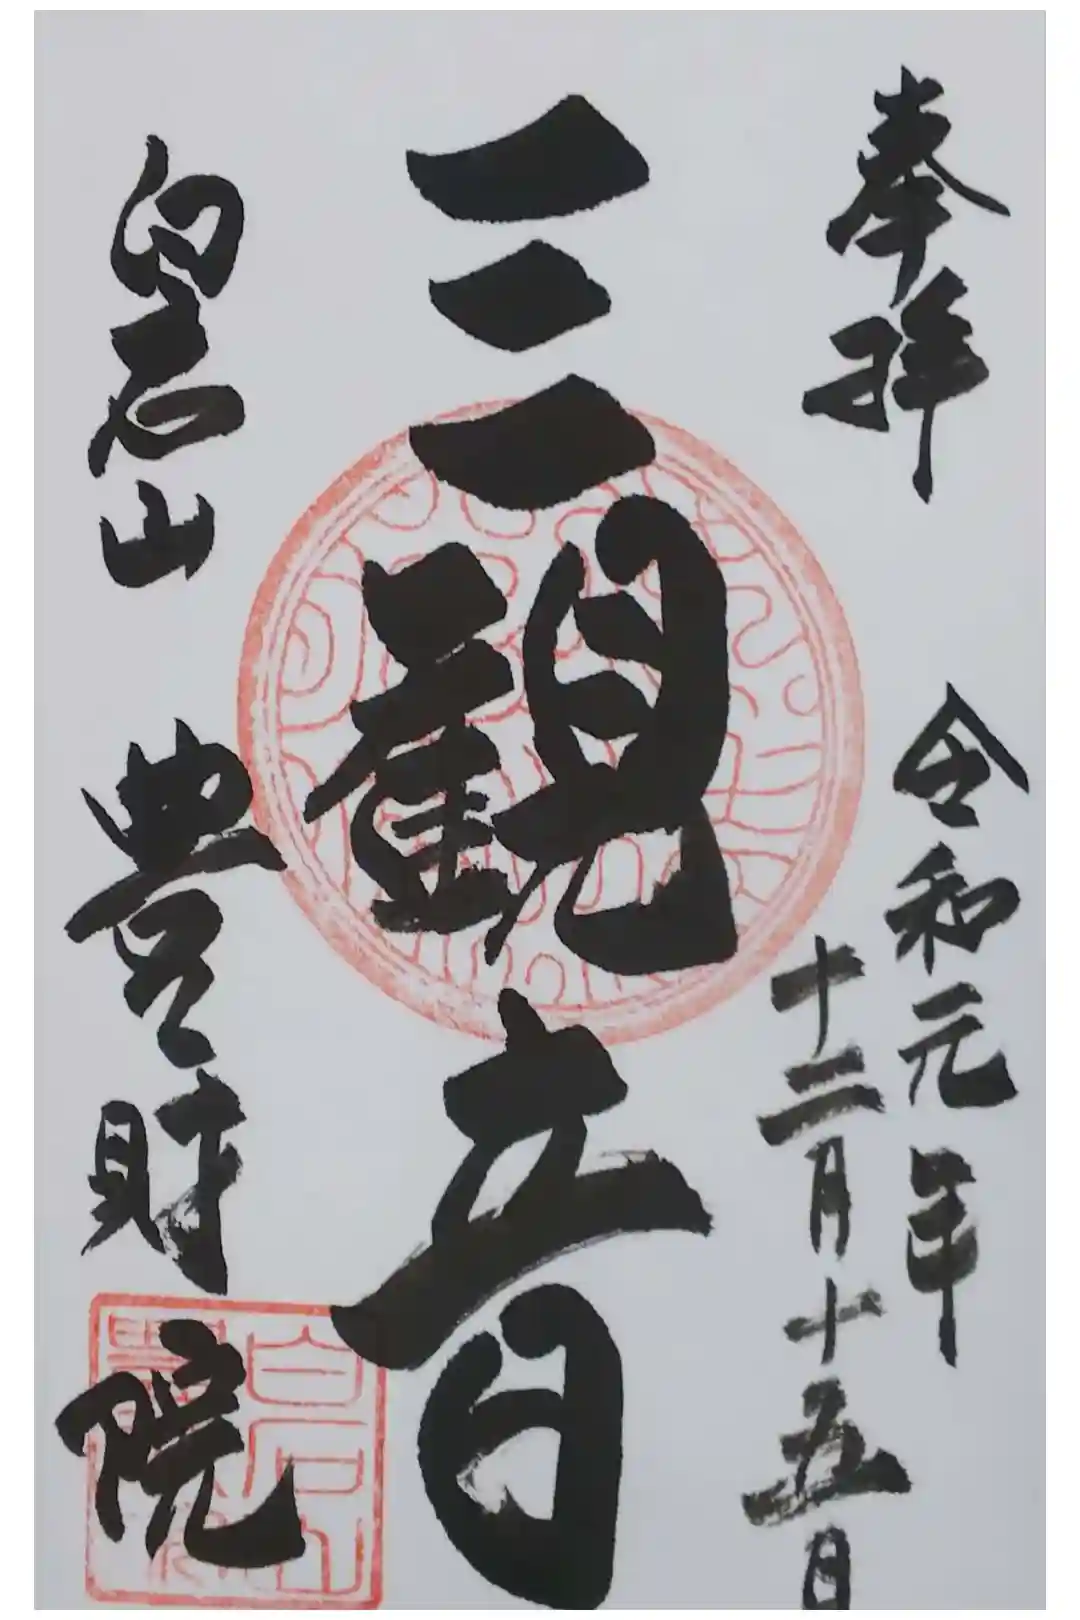 奉拝 令和元年
十二月十五日
三観音
白石山 豊財院